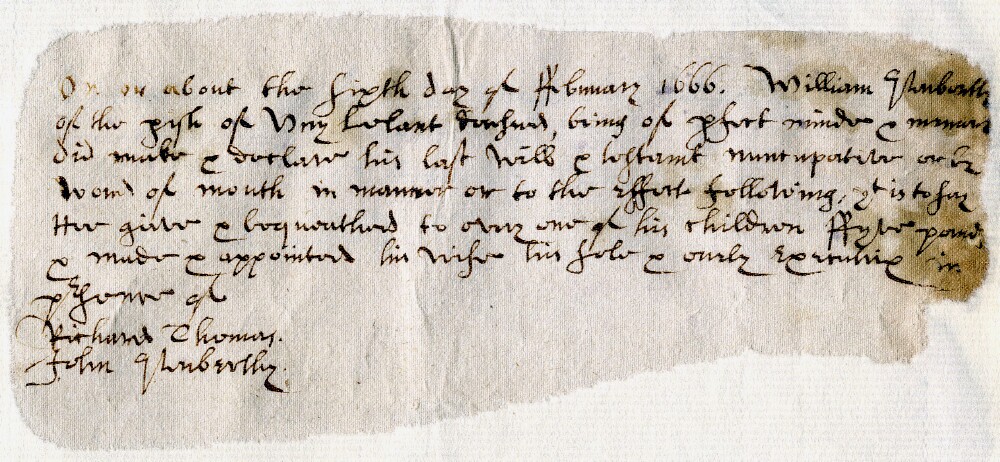 On or about the sixth day of ffebruary 1666. William
of the pish of Uny Lelant deceased, being of pfect minde & memory
did make & declare his last will & testamt nuncupative or by
word of mouth in manner or to the Effect following, yt is to say
Hee give & bequeathed to every one of his children ffyve pound
& made & appointed his wife his sole & only Executrix in
psence of
Richard Thomas.
John